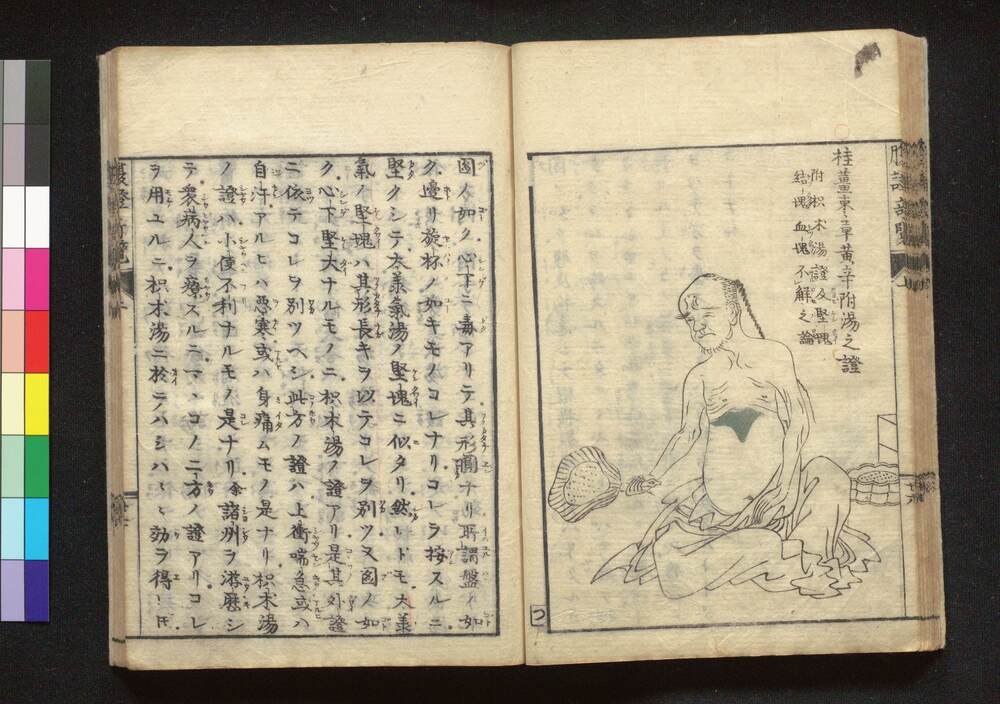 桂薑棗草黄辛附湯之證
附枳朮湯證及堅塊
結塊血塊不解之論
圖人如ク心下ニ毒アリテ其形圓ナリ所謂盤ノ如
ク邊リ旋杯ノ如キモノコレナリコレヲ按スルニ
堅クシテ大羕氣湯ノ堅塊ニ似タリ然レトモ大羕
氣ノ堅塊ハ其形長キヲ以テコレヲ別ツ又圖ノ如
ク心下堅大ナルモノニ枳朮湯ノ證アリ是其外證
ニ依テコレヲ別ツヘシ此方ノ證ハ上衝喘急或ハ
自汗アルヒハ悪寒或ハ身痛ムモノ是ナリ枳朮湯
ノ證ハ小便不利ナルモノ是ナリ余諸州ヲ游歴シ
テ衆病人ヲ療スルニマヽコノ二方ノ證アリコレ
ヲ用ユルニ枳朮湯ニ於テハシハ〱効ヲ得レ𪜈